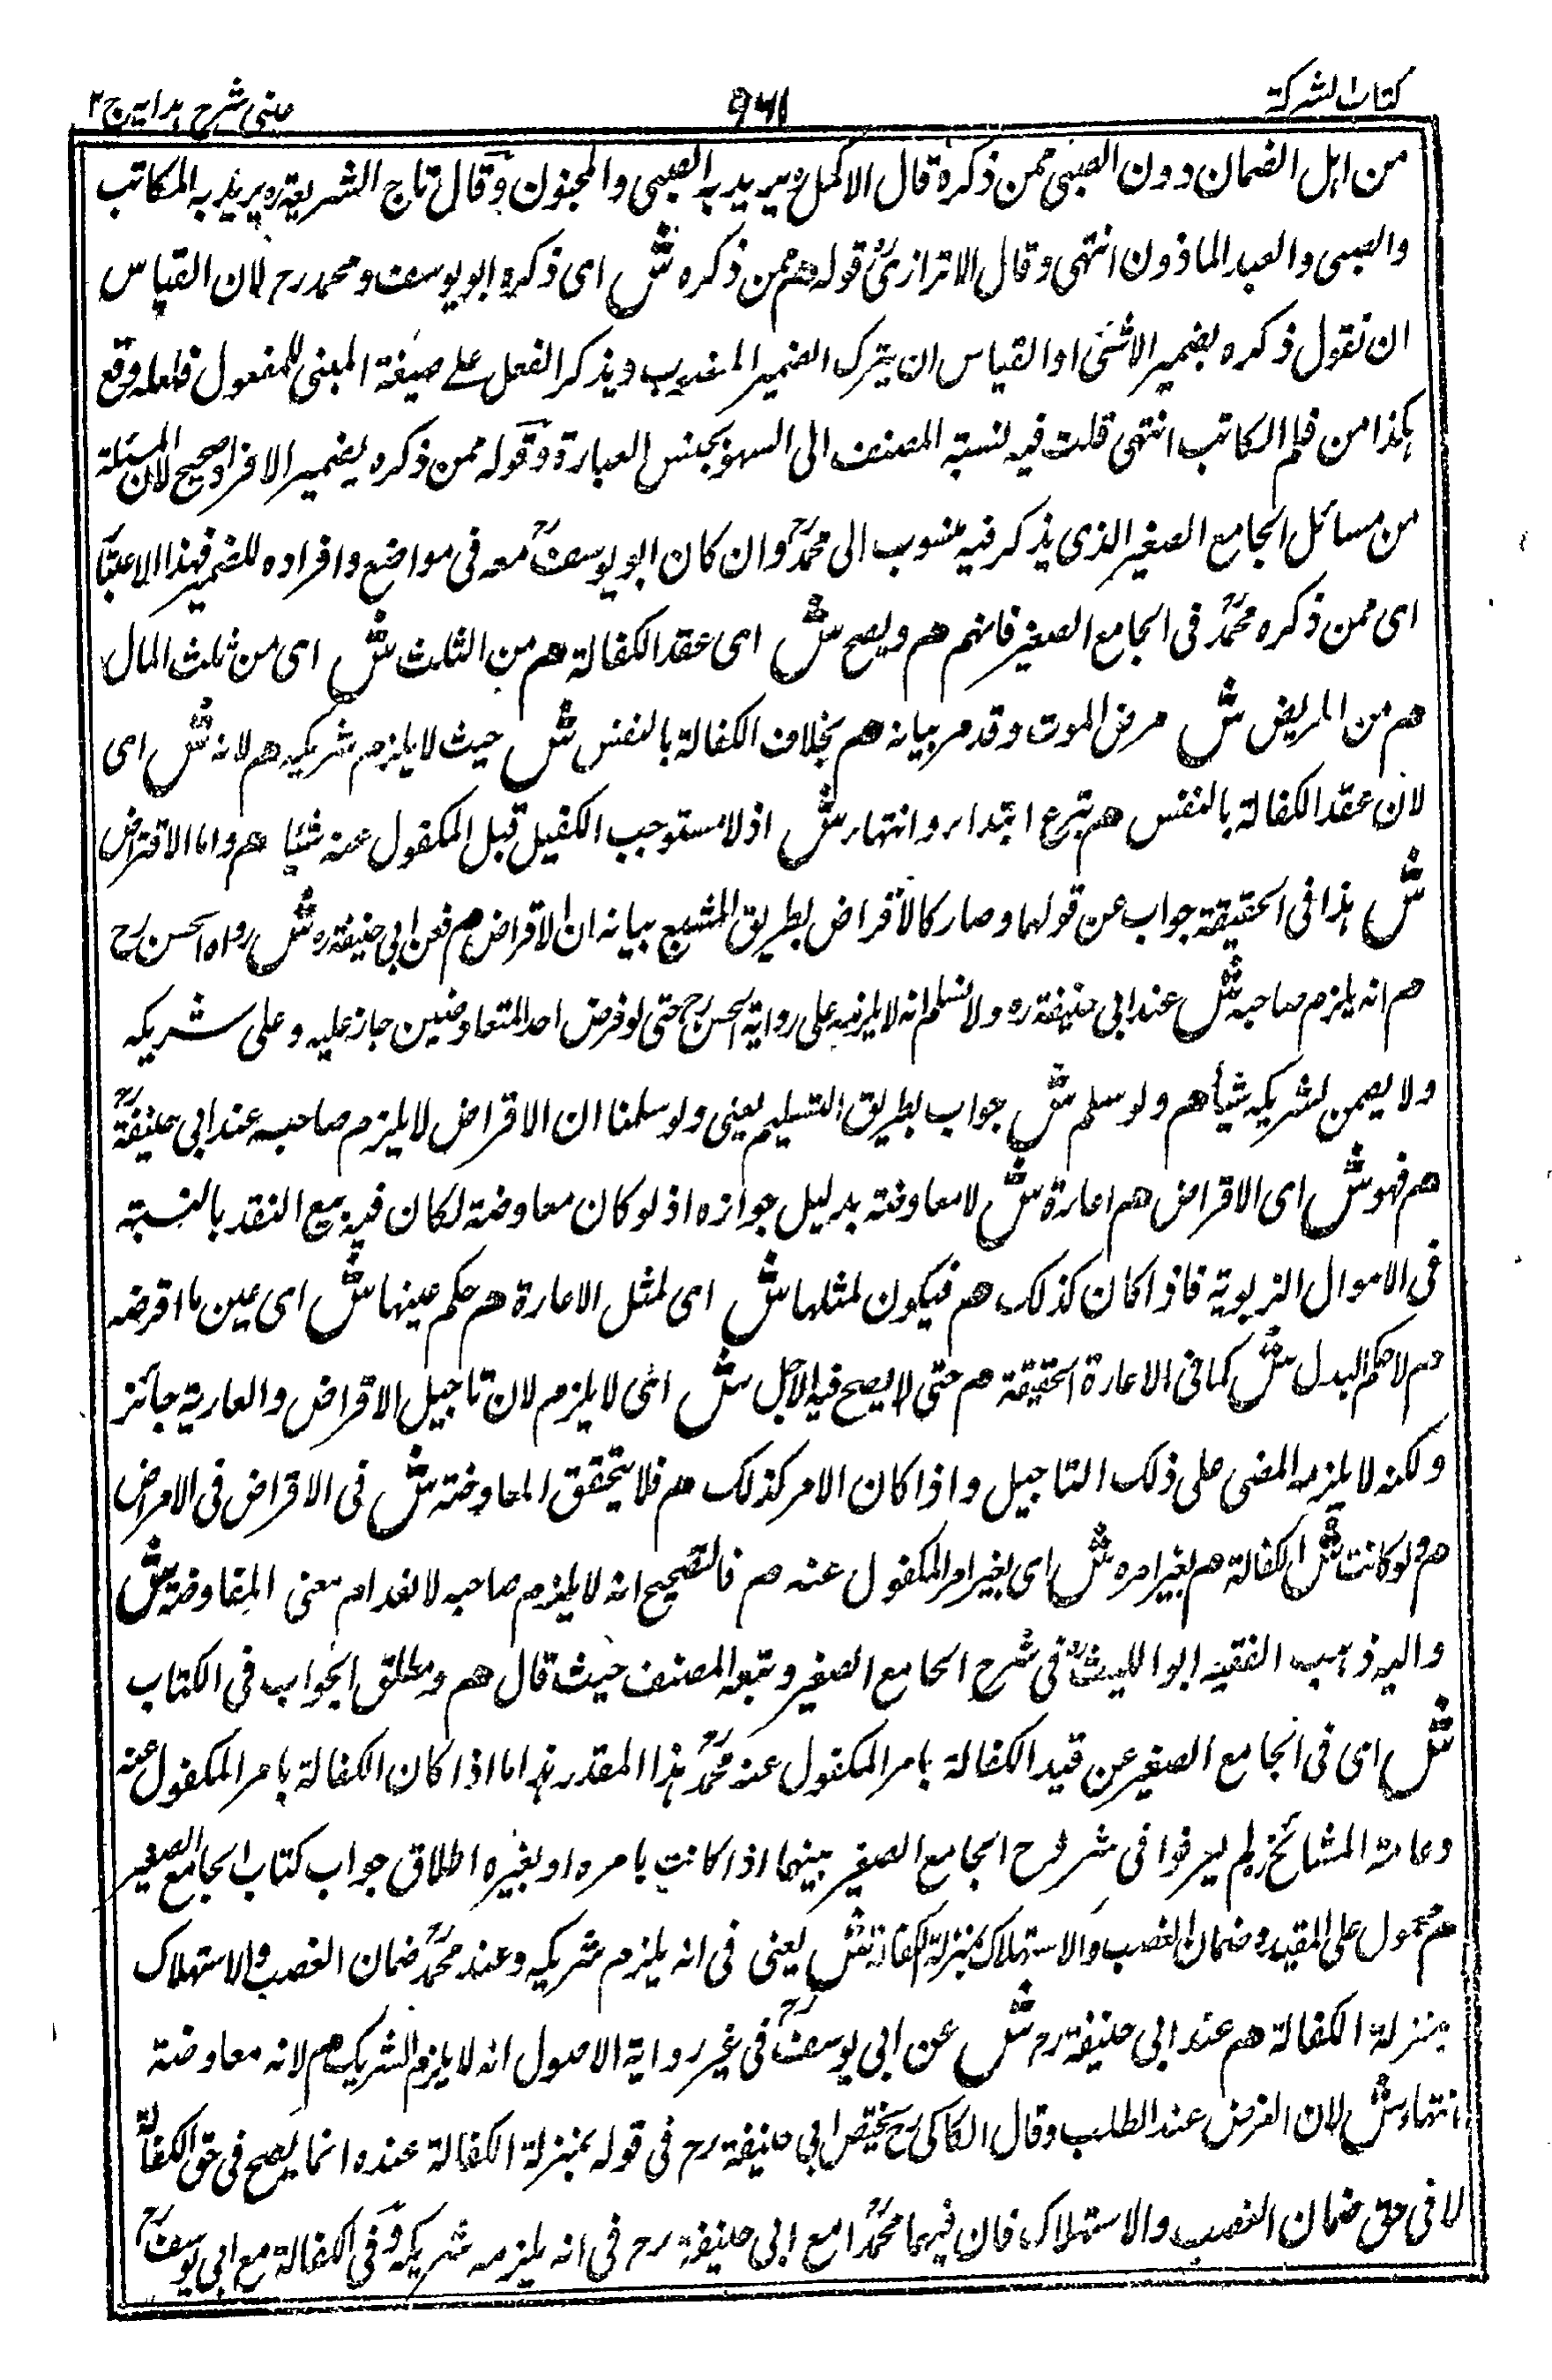 كتاب الشركة
٩٦١
عينى شرح هدايه ج ٢
من اهل الضمان دون الصبى ممن ذكره قال الاكمل ره يريد به الصبى والمجنون وقال تاج الشريعة ره يريد به المكاتب
والصبى والعبد الماذون انتهى وقال الاترازىؒ قوله هم ممن ذكره ش اى ذكره ابو يوسف ومحمد رح لان القياس
ان نقول ذكره بضمير الاثنى او القياس ان يترك الضمير المنصوب ويذكر الفعل على صيغة المبنى للمفعول فلعله وقع
هكذا من قلم الكاتب انتهى قلت فيه نسبة المصنف الى السهو بجنس العبارة وقوله ممن ذكره بضمير الافراد صحيح لان المسئلة
من مسائل الجامع الصغير الذى يذكر فيه منسوب الى محمدؒ وان كان ابو يوسفؒ معه فى مواضع وافراده للضمير فهذا الاعتبار
اى ممن ذكره محمدؒ فى الجامع الصغير فافهم هم ويصح ش اى عقد الكفالة هم من الثلث ش اى من ثلث المال
هم من المريض ش مرض الموت وقد مر بيانه هم بخلاف الكفالة بالنفس ش حيث لا يلزم شريكه هم لانه ش اى
لان عقد الكفالة بالنفس هم تبرع ابتداء وانتهاء ش اذ لا يستوجب الكفيل قبل المكفول عنه شيئا هم واما الاقتراض
ش هذا فى الحقيقة جواب عن قولهما وصار كالاقراض بطريق المنع بيانه ان الاقراض هم فعن ابى حنيفة ره ش رواه الحسن رح
هم انه يلزم صاحبه ش عند ابى حنيفة ره ولا نسلم انه لا يلزمه على رواية الحسن رح حتى لو قرض احد المتفاوضين جاز عليه وعلى شريكه
ولا يضمن لشريكه شيئا هم ولو سلم ش جواب بطريق التسليم يعنى ولو سلمنا ان الاقراض لا يلزم صاحبه عند ابى حنيفةؒ
هم فهو ش اى الاقراض هم اعارة ش لا معاوضة بدليل جوازه اذ لو كان معاوضة لكان فيه بيع النقد بالنسية
فى الاموال الربوية فاذا كان كذلك هم فيكون لمثلها ش اى لمثل الاعارة هم حكم عينها ش اى عين ما اقرضه
هم لا حكم البدل ش كما فى الاعارة الحقيقة هم حتى لا يصح فيه الاجل ش اى لا يلزم لان تاجيل الاقراض والعارية جائز
ولكنه لا يلزمه المضى على ذلك التاجيل واذا كان الامر كذلك هم فلا يتحقق المعاوضة ش فى الاقراض فى الامراض
هم ولو كانت ش الكفالة هم بغير امره ش اى بغير امر المكفول عنه هم فالصحيح انه لا يلزم صاحبه لانعدام معنى المفاوضة ش
واليه ذهب الفقيه ابو الليثؒ فى شرح الجامع الصغير وتبعه المصنف حيث قال هم ومطلق الجواب فى الكتاب
ش اى فى الجامع الصغير عن قيد الكفالة بامر المكفول عنه محمدؒ هذا المقدر هذا اما اذا كان الكفالة بامر المكفول عنه
وعامة المشائخ لم يعرفوا فى شروح الجامع الصغير بينهما اذا كانت بامره او بغيره اطلاق جواب كتاب الجامع الصغير
هم محمول على المقيد وضمان الغصب والاستهلاك بمنزلة الكفالة ش يعنى فى انه يلزم شريكه وعند محمدؒ ضمان الغصب والاستهلاك
بمنزلة الكفالة هم عند ابى حنيفة رح ش عن ابى يوسفؒ فى غير رواية الاصول انه لا يلزم الشريك هم لانه معاوضة
انتهاء ش لان القرض عند الطلب وقال الكاكى رح تخصيص ابى حنيفة رح فى قوله بمنزلة الكفالة عنده انما يصح فى حق الكفالة
لا فى حق ضمان الغصب والاستهلاك فان فيهما محمدؒ امع ابى حنيفة رح فى انه يلزمه شريكه وفى الكفالة مع ابى يوسفؒ